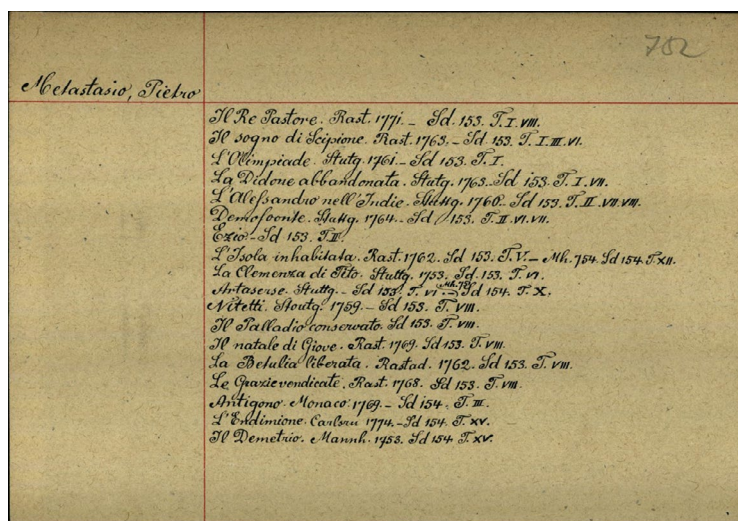 752
Metastasio, Pietro
Il Re Pastore. Rast. 1771. - Sd. 153. T. I. VIII.
Il sogno di Scipione. Rast. 1763. - Sd. 153. T. I. III. VI.
L'Olimpiade. Stutg. 1761. - Sd 153. T. I.
La Didone abbandonata. Stutg. 1763. Sd 153. T. I. VII.
L'Alessandro nell'Indie. Stuttg. 1760. Sd 153. T. II. VII. VIII.
Demofoonte. Stuttg. 1764. - Sd 153. T. II. VI. VII.
Ezio - Sd 153. T. III.
L'Isola inhabitata. Rast. 1762. Sd 153. T. V. - Mh. 754. Sd 154. T. XII.
La Clemenza di Tito. Stuttg. 1753. Sd. 153. T. VI.
Artaserse. Stuttg. - Sd 153. T. VI - Sd 154. T. X.
Nitetti. Stoutg. 1759. - Sd 153. T. VIII.
Il Palladio conservato. Sd 153. T. VIII.
Il natale di Giove. Rast. 1769. Sd 153. T. VIII.
La Betulia liberata. Rastad. 1762. Sd 153. T. VIII.
Le Grazie vendicate. Rast. 1768. Sd 153. T. VIII.
Antigono. Monaco 1769. - Sd 154. T. III.
L'Endimione. Carlsru 1774. - Sd 154. T. XV.
Il Demetrio. Mannh. 1753. Sd 154 T. XV.